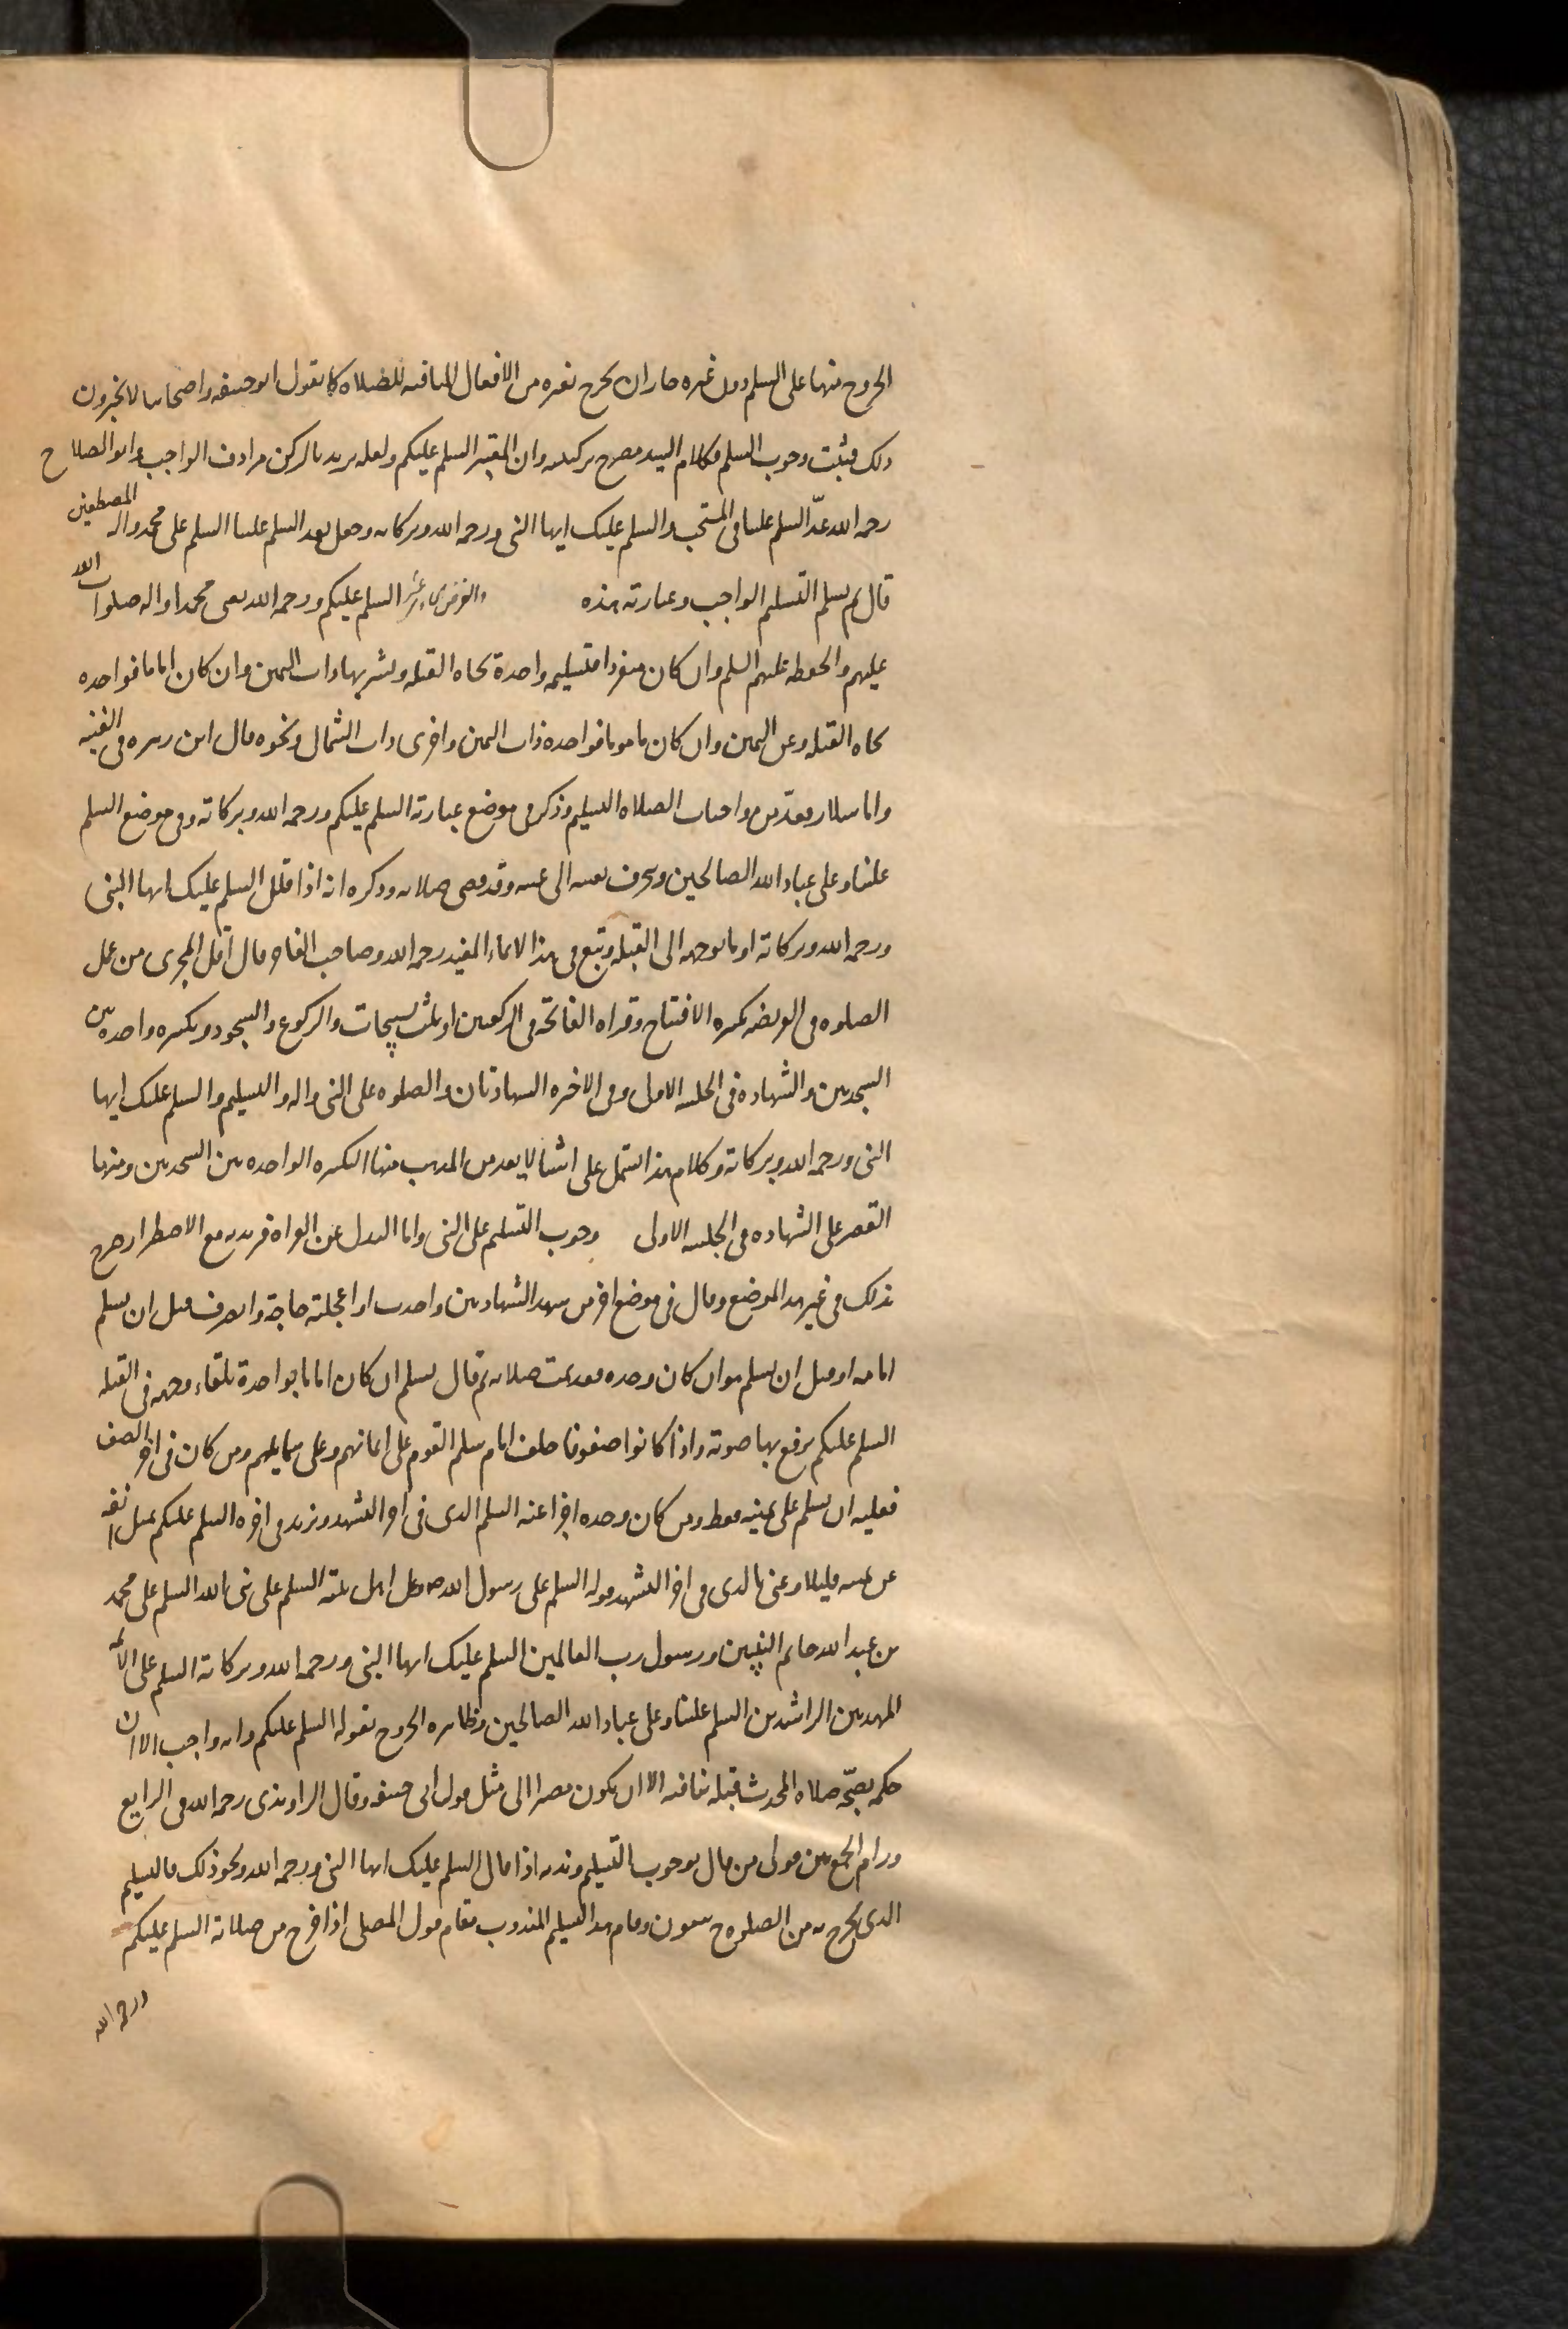 الخروج منها على السلم دون غيره جاز ان يخرج بغيره من الافعال المنافيه للصلاه كما يقول ابو حنيفه واصحابنا لا يجيزون
ذلك فيثبت وجوب السلم فكلام السيد مصرح بركنيته وان المعتبر السلم عليكم ولعله يريد بالركن مرادف الواجب وابو الصلاح
رحمه الله عدّ السلم علينا في المستحب والسلم عليك ايها النبي ورحمه الله وبركاته وجعل بعد السلم علينا السلم على محمد واله المصطفين
قال ثم يسلم التسليم الواجب وعبارته هذه والفرض السلم عليكم ورحمه الله يعني محمدا واله صلوات الله
عليهم والحفظه عليهم السلم وان كان منفردا فتسليمه واحدة تجاه القبله ويشير بها ذات اليمين وان كان اماما فواحده
تجاه القبله وعن اليمين وان كان ماموما فواحده ذات اليمين واخرى ذات الشمال ونحوه قال ابن زهره في الغنيه
واما سلار فعدّ من واجبات الصلاه التسليم وذكر في موضع عبارته السلم عليكم ورحمه الله وبركاته وفي موضع السلم
علينا وعلى عباد الله الصالحين وينحرف بعينه الى يمينه وقد قضى صلاته وذكره انه اذا قال السلم عليك ايها النبي
ورحمه الله وبركاته اوما بوجهه الى القبله وتبع في هذا الايماء المفيد رحمه الله وصاحب الفاخر قال اقل المجزى من عمل
الصلوه في الفريضه تكبيره الافتتاح وقراه الفاتحة في الركعتين او ثلث تسبيحات والركوع والسجود وتكبيره واحدة بين
السجدتين والشهاده في الجلسه الاولى وفي الاخيره الشهادتان والصلوه على النبي واله والتسليم والسلم عليك ايها
النبي ورحمه الله وبركاته وكلام هذا اشتمل على اشيا لا تعد من المذهب منها التكبيره الواحده بين السجدتين ومنها
القصر على الشهاده في الجلسه الاولى وجوب التسليم على النبي واما البدل عن القراه فيريد به مع الاضطرار صرح
بذلك في غير هذا الموضع وقال في موضع اخر من شهد الشهادتين واحدث او اعجلته حاجة وانصرف قبل ان يسلم
امامه او قبل ان يسلم هو ان كان وحده فقد تمت صلاته ثم قال يسلم ان كان اماما بواحدة تلقاء وجهه في القبله
السلم عليكم يرفع بها صوته واذا كانوا صفوفا خلف امام سلم القوم على ايمانهم وعلى شمايلهم ومن كان في اخر الصف
فعليه ان يسلم على يمينه فقط ومن كان وحده اجزا عنه السلم الذي في اخر التشهد ويزيد في اخره السلم عليكم يميل انفه
عن يمينه قليلا وعنى بالذي في اخر التشهد قوله السلم على رسول الله وعلى اهل بيته السلم على نبي الله السلم على محمد
بن عبد الله خاتم النبيين ورسول رب العالمين السلم عليك ايها النبي ورحمه الله وبركاته السلم على الائمه
المهديين الراشدين السلم علينا وعلى عباد الله الصالحين وظاهره الخروج بقوله السلم عليكم وانه واجب الا ان
حكمه بصحّة صلاه المحدث قبله ينافيه الا ان يكون مصيرا الى مثل قول ابي حنيفه وقال الراوندي رحمه الله في الرايع
ورام الجمع بين قولي من قال بوجوب التسليم وندبه اذا قال السلم عليك ايها النبي ورحمه الله ونحو ذلك فالتسليم
الذي يخرج به من الصلوه ح مسنون وقام هذا التسليم المندوب مقام قول المصلى اذا خرج من صلاته السلم عليكم
ورحمه الله